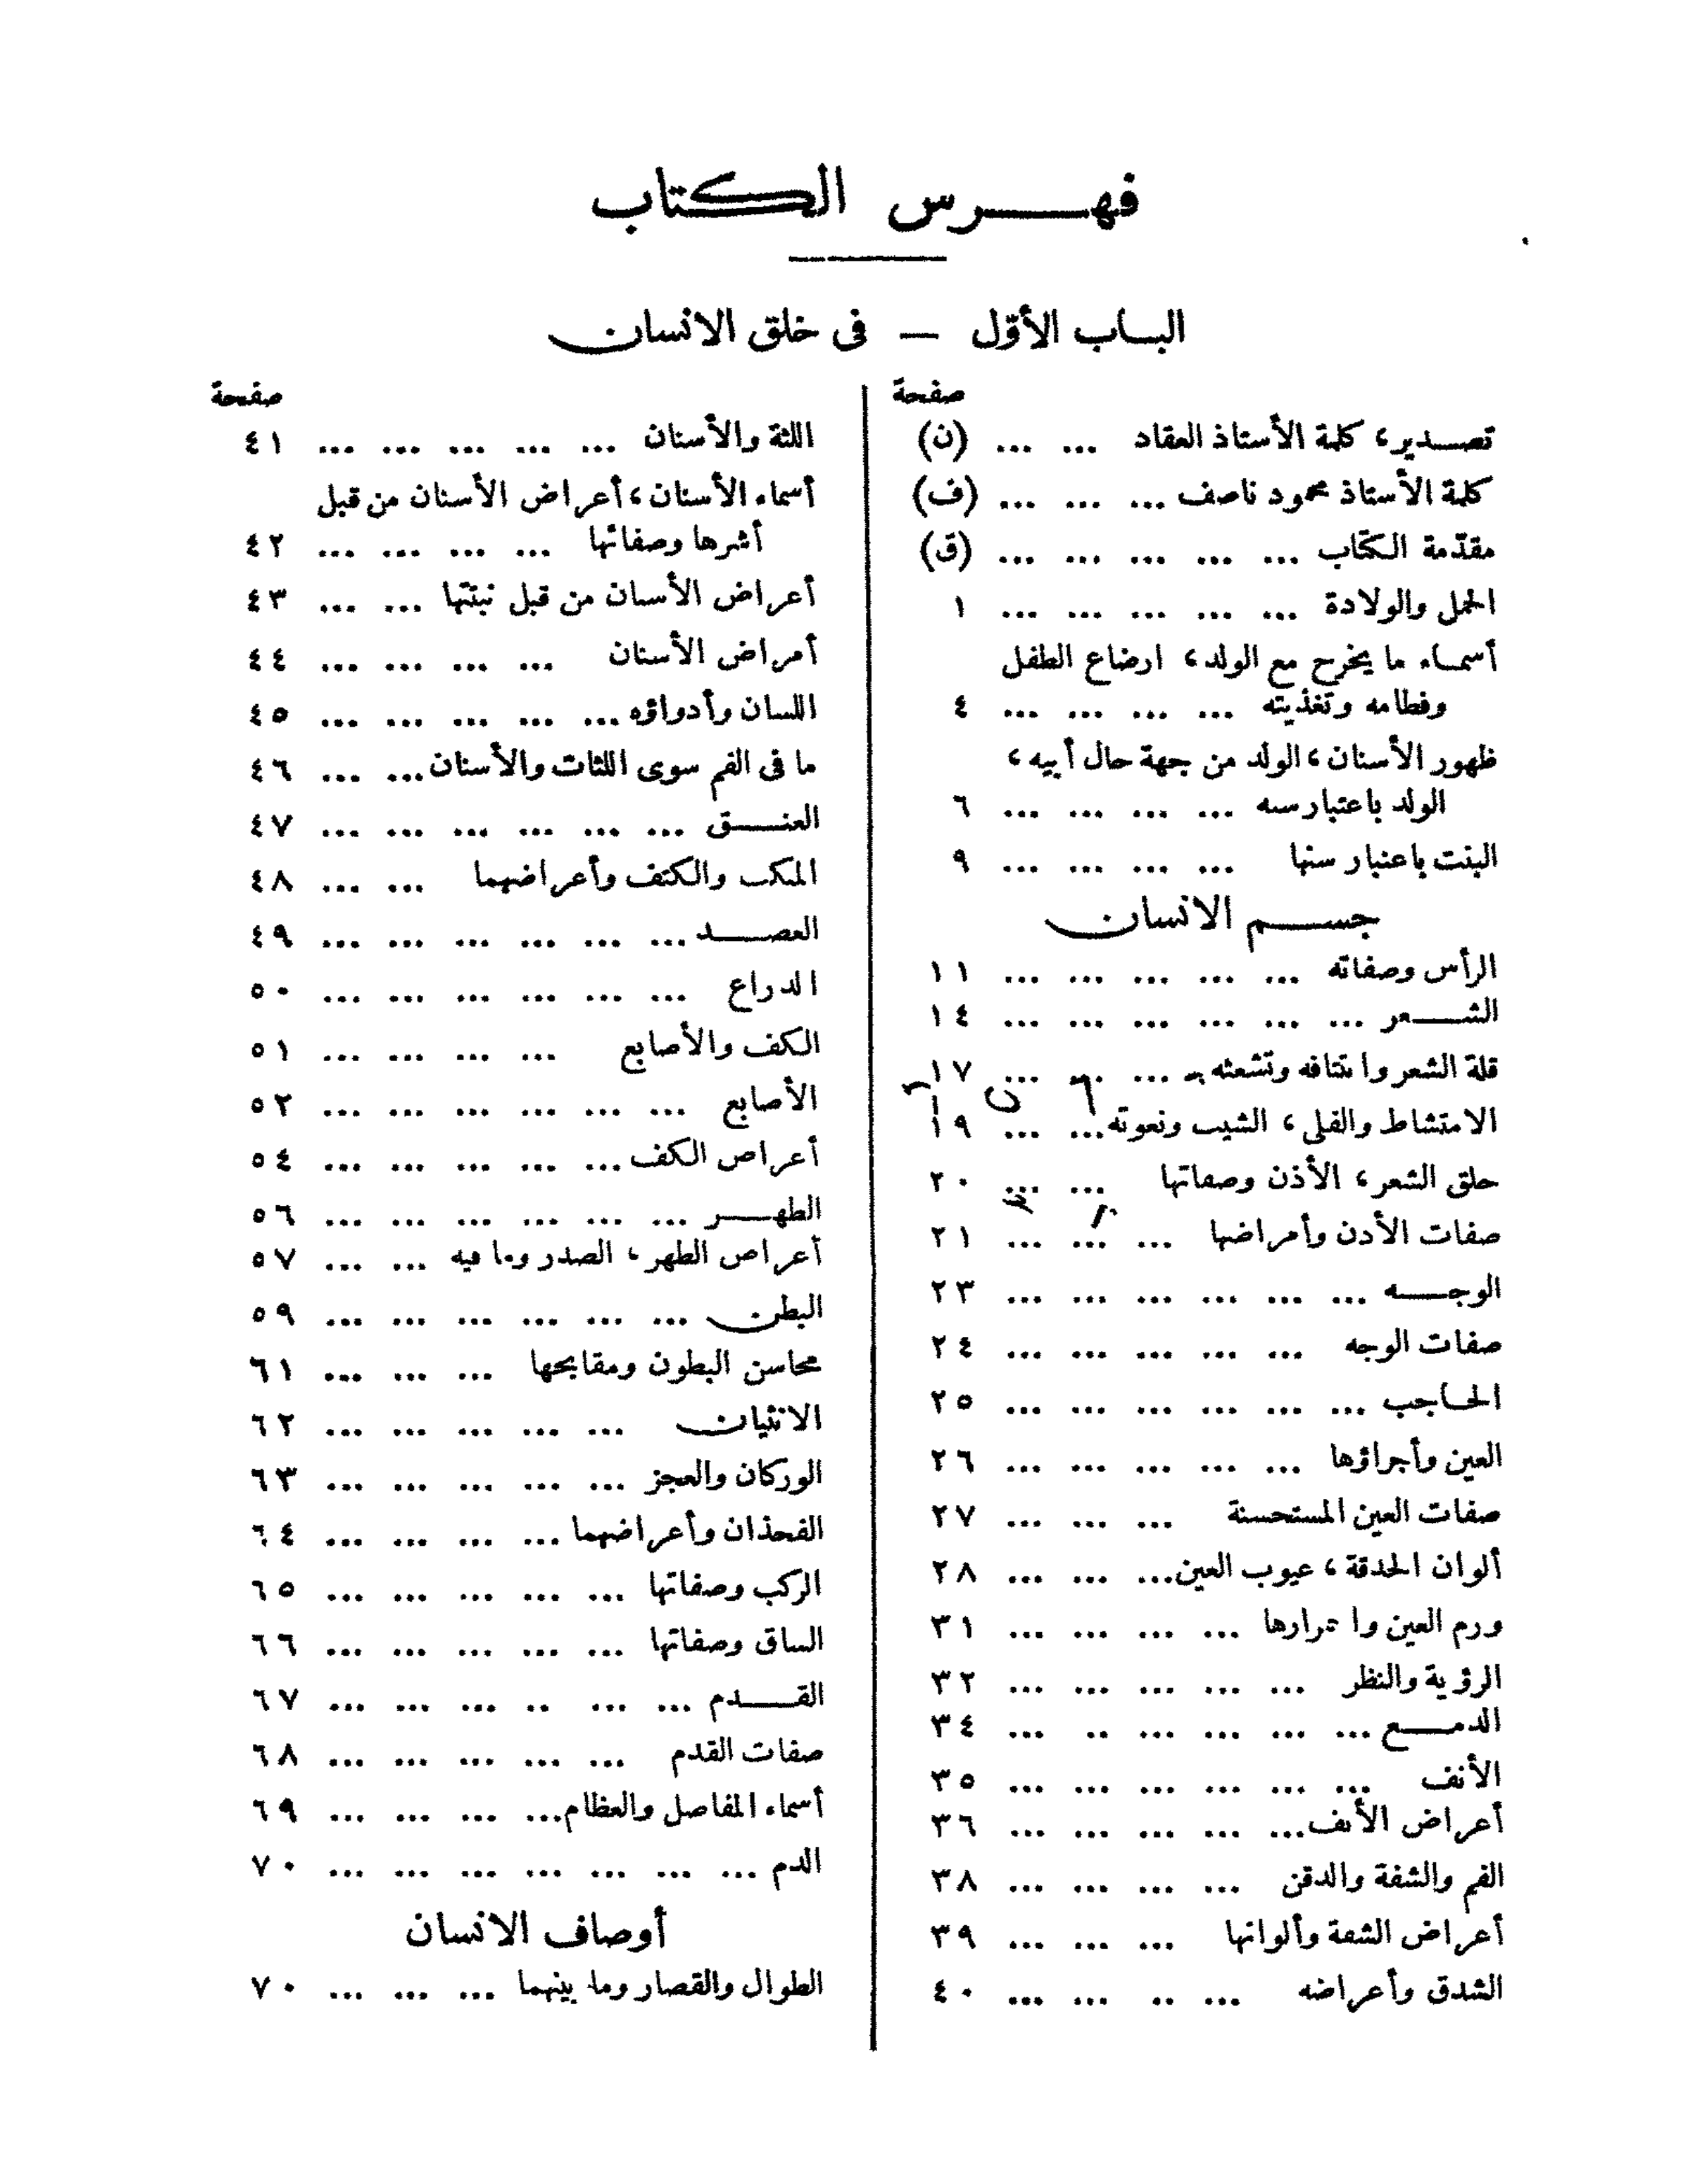 فهرس الكتاب
الباب الأول — فى خلق الانسان
صفحة
تصدير، كلمة الأستاذ العقاد ... ... (ن)
كلمة الأستاذ محمود ناصف ... ... ... (ف)
مقدّمة الكتاب ... ... ... ... ... (ق)
الحمل والولادة ... ... ... ... ... ١
أسماء ما يخرج مع الولد، ارضاع الطفل
وفطامه وتغذيته ... ... ... ... ٤
ظهور الأسنان، الولد من جهة حال أبيه،
الولد باعتبار سنه ... ... ... ... ٦
البنت باعتبار سنها ... ... ... ... ٩
جسم الانسان
الرأس وصفاته ... ... ... ... ... ١١
الشعر ... ... ... ... ... ... ١٤
قلة الشعر وانتتافه وتشعثه ... ... ... ١٧
الامتشاط والفلى، الشيب ونعوته ... ... ١٩
حلق الشعر، الأذن وصفاتها ... ... ٢٠
صفات الأذن وأمراضها ... ... ... ٢١
الوجه ... ... ... ... ... ... ٢٣
صفات الوجه ... ... ... ... ... ٢٤
الحاجب ... ... ... ... ... ... ٢٥
العين وأجزاؤها ... ... ... ... ... ٢٦
صفات العين المستحسنة ... ... ... ٢٧
ألوان الحدقة، عيوب العين ... ... ... ٢٨
ورم العين وا ... ... ... ... ٣١
الرؤية والنظر ... ... ... ... ... ٣٢
الدمع ... ... ... ... .. ... ٣٤
الأنف ... ... ... ... ... ... ٣٥
أعراض الأنف ... ... ... ... ... ٣٦
الفم والشفة والدقن ... ... ... ... ٣٨
أعراض الشفة وألوانها ... ... ... ٣٩
الشدق وأعراضه ... .. ... ... ٤٠
صفحة
اللثة والأسنان ... ... ... ... ... ٤١
أسماء الأسنان، أعراض الأسنان من قبل
أشرها وصفائها ... ... ... ... ٤٢
أعراض الأسنان من قبل نبتتها ... ... ٤٣
أمراض الأسنان ... ... ... ... ٤٤
اللسان وأدواؤه ... ... ... ... ... ٤٥
ما فى الفم سوى اللثات والأسنان ... ... ٤٦
العنق ... ... ... ... ... ... ٤٧
المنكب والكتف وأعراضهما ... ... ٤٨
العضد ... ... ... ... ... ... ٤٩
الدراع ... ... ... ... ... ... ٥٠
الكف والأصابع ... ... ... ... ٥١
الأصابع ... ... ... ... ... ... ٥٢
أعراض الكف ... ... ... ... ... ٥٤
الظهر ... ... ... ... ... ... ٥٦
أعراض الظهر، الصدر وما فيه ... ... ٥٧
البطن ... ... ... ... ... ... ٥٩
محاسن البطون ومقابحها ... ... ... ٦١
الانثيان ... ... ... ... ... ٦٢
الوركان والعجز ... ... ... ... ... ٦٣
الفخذان وأعراضهما ... ... ... ... ٦٤
الركب وصفاتها ... ... ... ... ... ٦٥
الساق وصفاتها ... ... ... ... ... ٦٦
القدم ... ... .. ... ... ... ٦٧
صفات القدم ... ... ... ... ... ٦٨
أسماء المفاصل والعظام ... ... ... ... ٦٩
الدم ... ... ... ... ... ... ... ٧٠
أوصاف الانسان
الطوال والقصار وما بينهما ... ... ... ٧٠